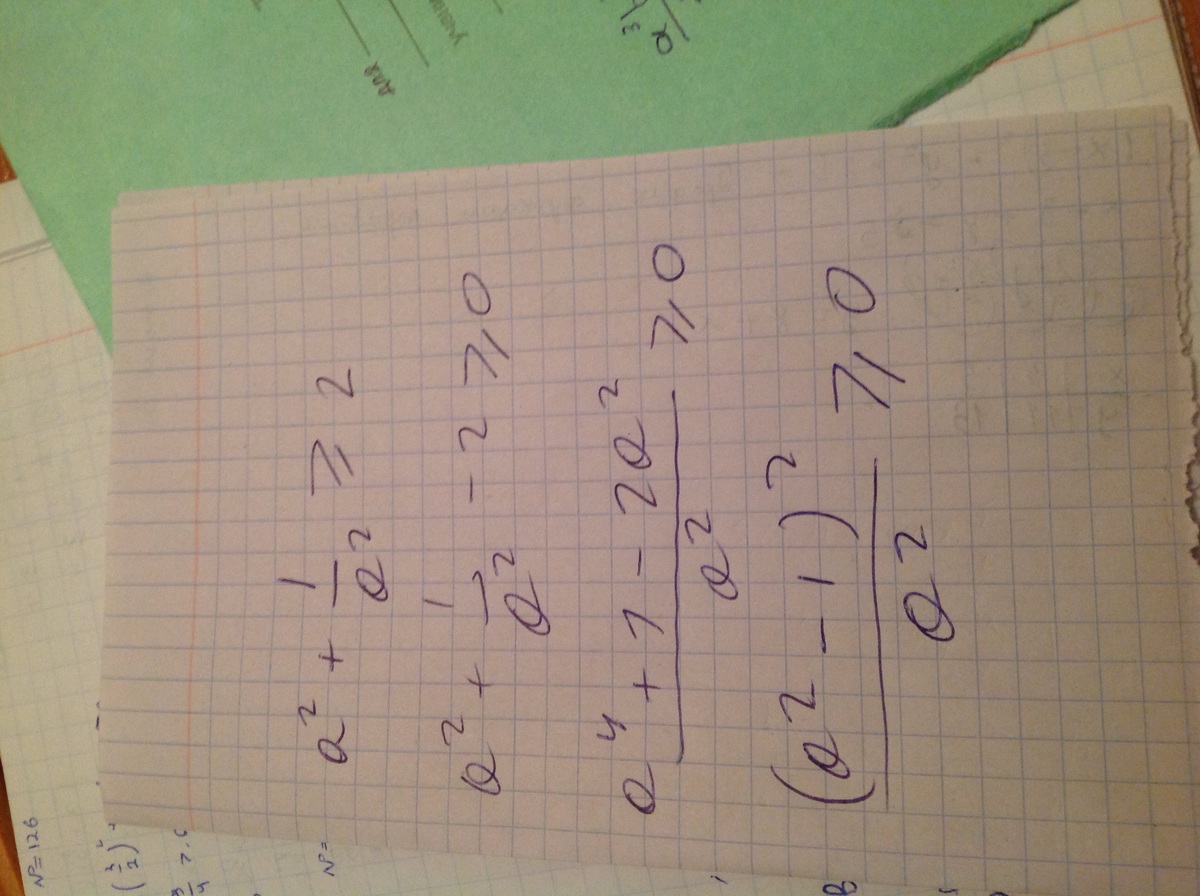 a² + 1/a² ⩾ 2
a² + 1/a² - 2 ⩾ 0
(a⁴ + 1 - 2a²)/a² ⩾ 0
(a² - 1)²/a² ⩾ 0
№=126
для
a³